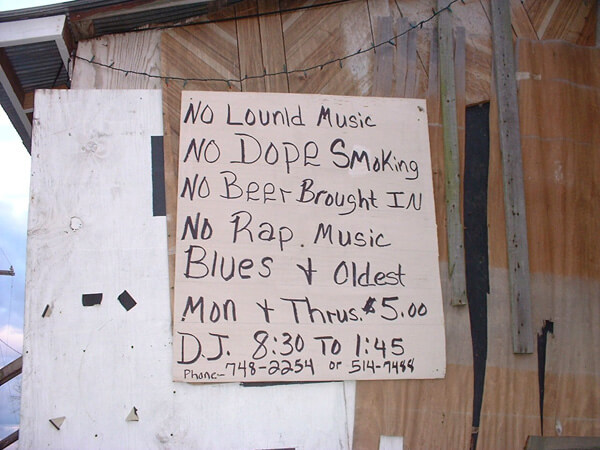 NO Lounld Music
NO DOPE SMoKing
NO BEEr Brought IN
NO Rap. Music
Blues & Oldest
Mon & Thrus. $5.00
D.J. 8:30 TO 1:45
Phone- 748-2254 or 514-7488